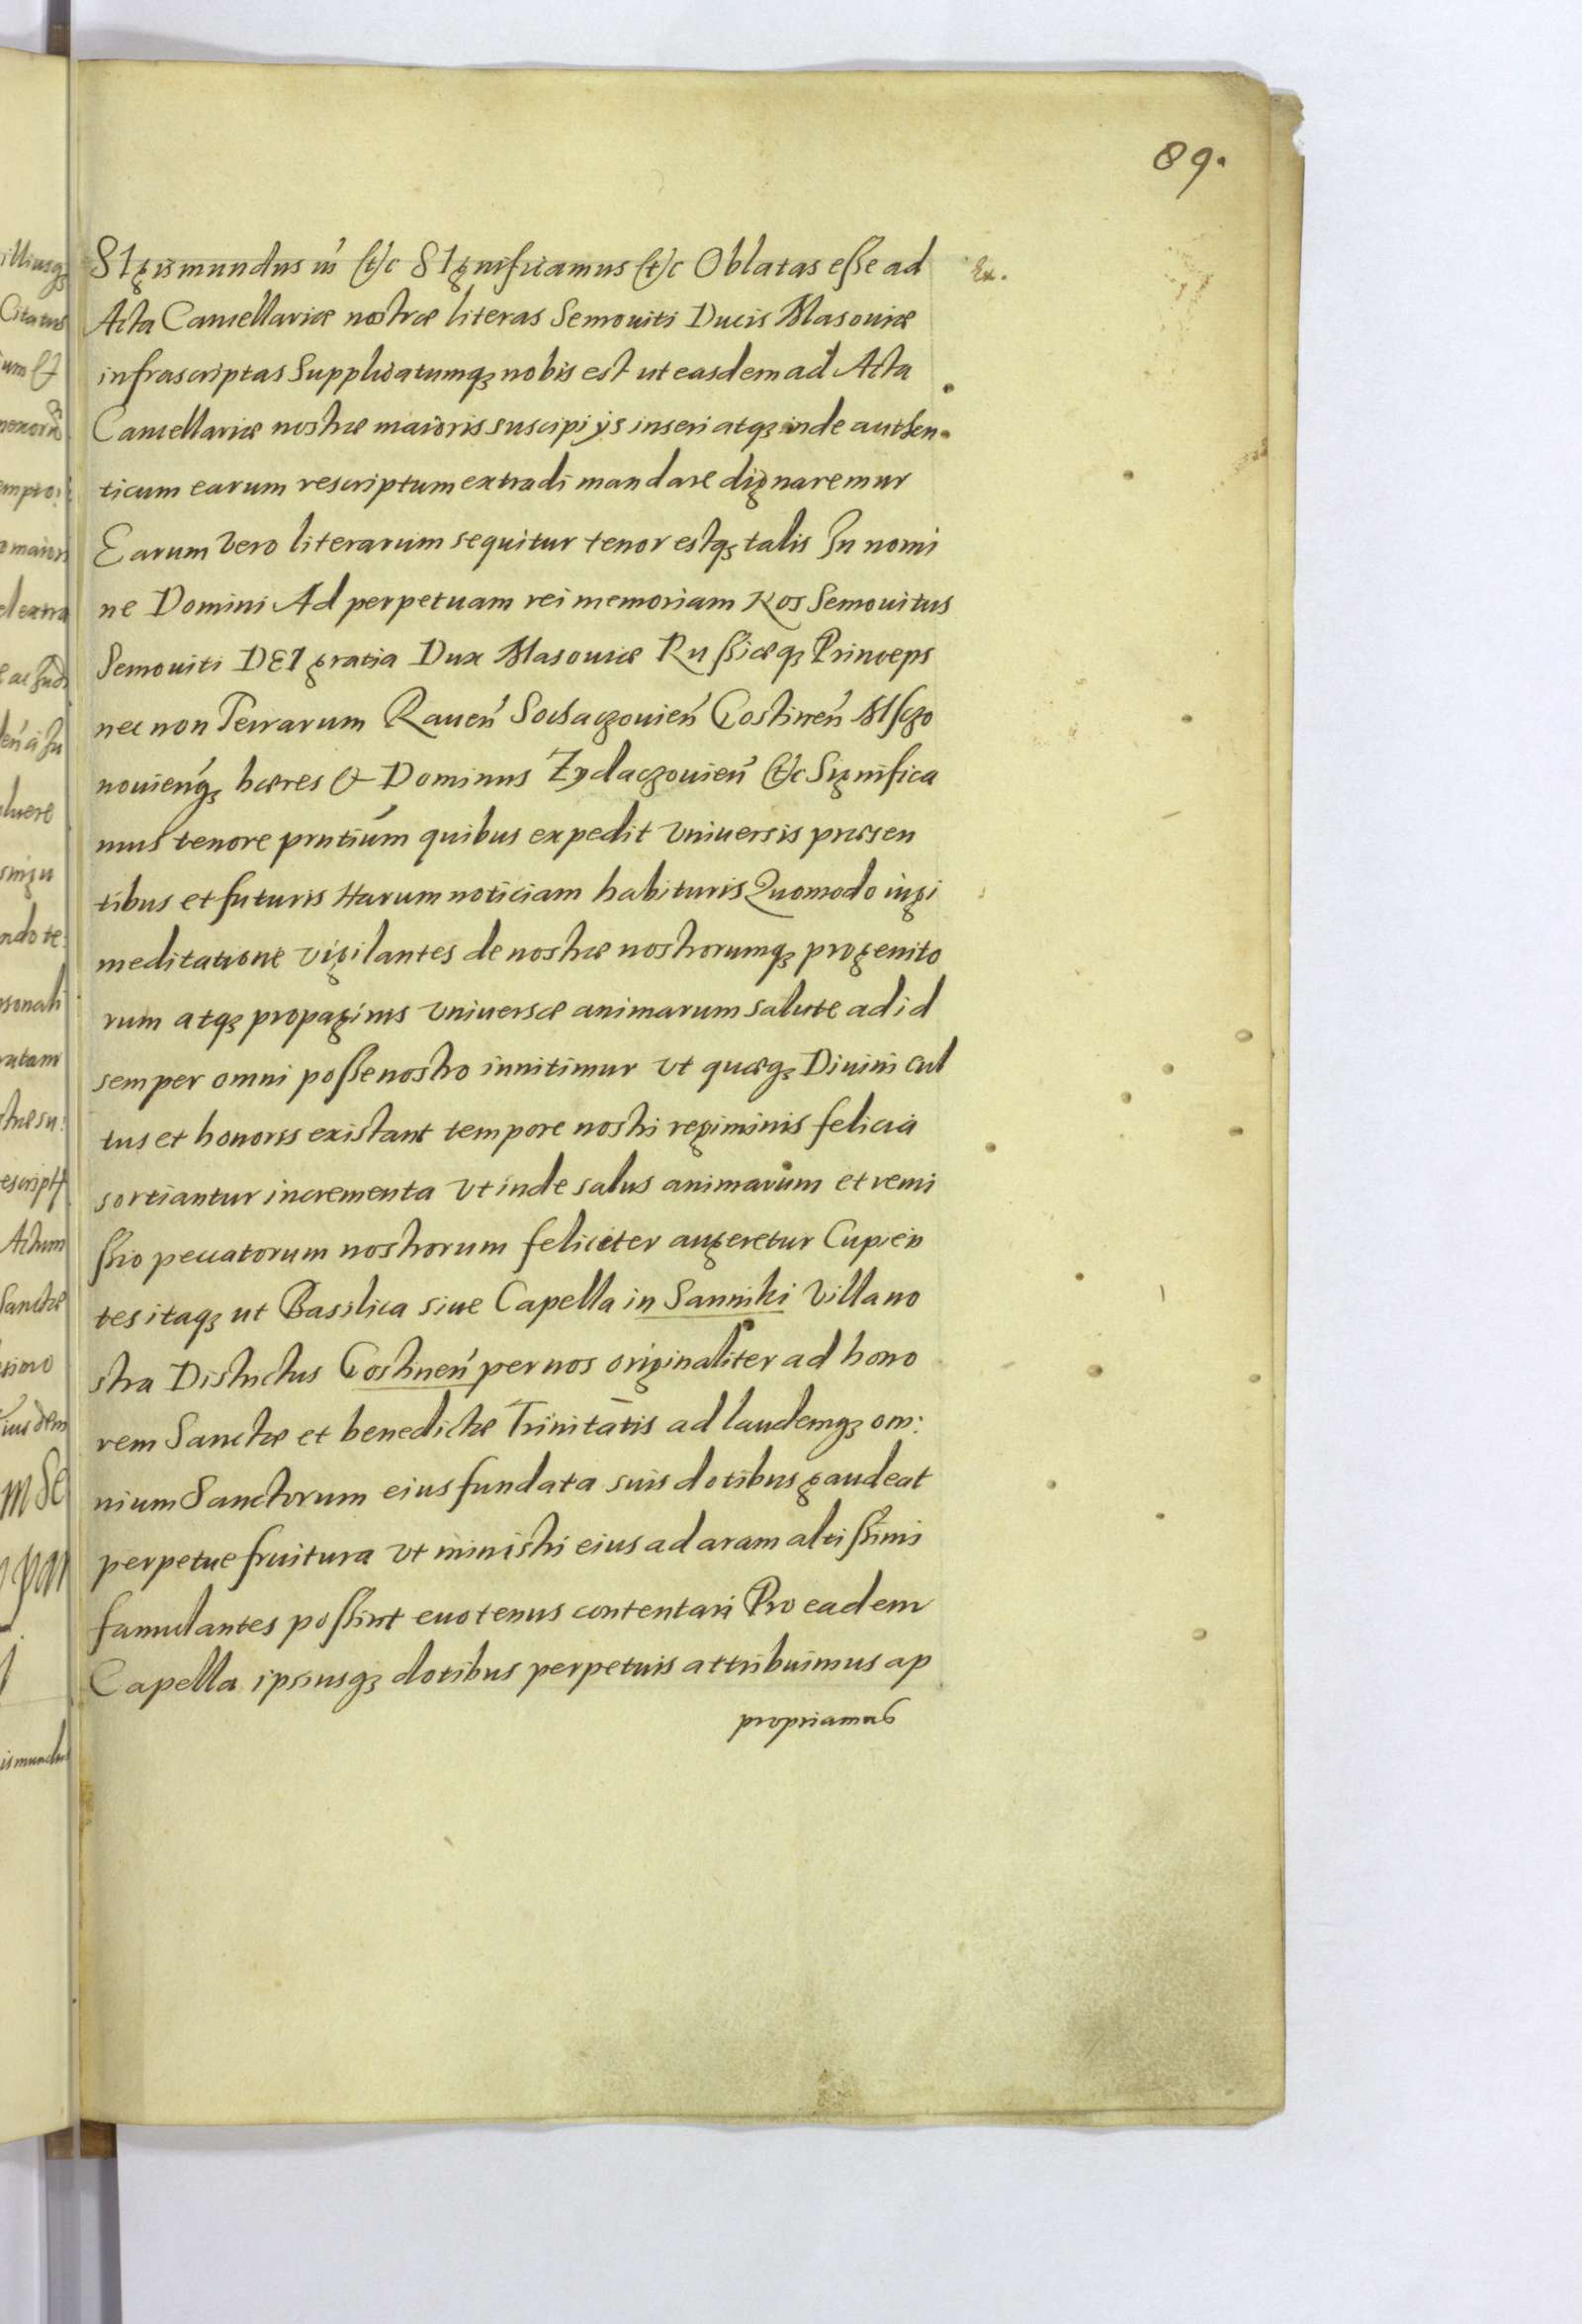 89.
SIgismundus III &c SIgnificamus &c Oblatas esse ad
Ex.
Acta Cancellariæ nostræ literas Semouiti Ducis Masouiæ
infrascriptas Supplicatumq3 nobis est ut easdem ad Acta
Cancellariæ nostræ maioris suscipi ijs inseri atq3 inde authen
ticum earum rescriptum extradi mandare dignaremur
Earum vero literarum sequitur tenor estq3 talis In nomi
ne Domini Ad perpetuam rei memoriam Nos Semouitus
Semouiti DEI gratia Dux Masouiæ Russiæq3 Princeps
nec non Terrarum Rauen̄ Sochaczouien̄ Gostinen̄ Msczo
nouienq3 hæres & Dominus Zydaczouien̄ &c Significa
mus tenore pn̄tium quibus expedit vniuersis præsen
tibus et futuris Harum noticiam habituris Quomodo iugi
meditatione vigilantes de nostræ nostrorumq3 progenito
rum atq3 propaginis vniuersæ animarum salute ad id
semper omni posse nostro innitimur vt quæq3 Diuini cul
tus et honoris existant tempore nostri regiminis felicia
sortiantur incrementa vt inde salus animarum et remi
ssio peccatorum nostrorum feliciter augeretur Cupien
tes itaq3 ut Basilica siue Capella in Sanniki villa no
stra Districtus Gostinen̄ per nos originaliter ad hono
rem Sanctæ et benedictæ Trinitatis ad laudemq3 om:
nium Sanctorum eius fundata suis dotibus gaudeat
perpetue fruitura vt ministri eius ad aram altissimi
famulantes possint euotenus contentari Pro eadem
Capella ipsiusq3 dotibus perpetuis attribuimus ap
propriamus